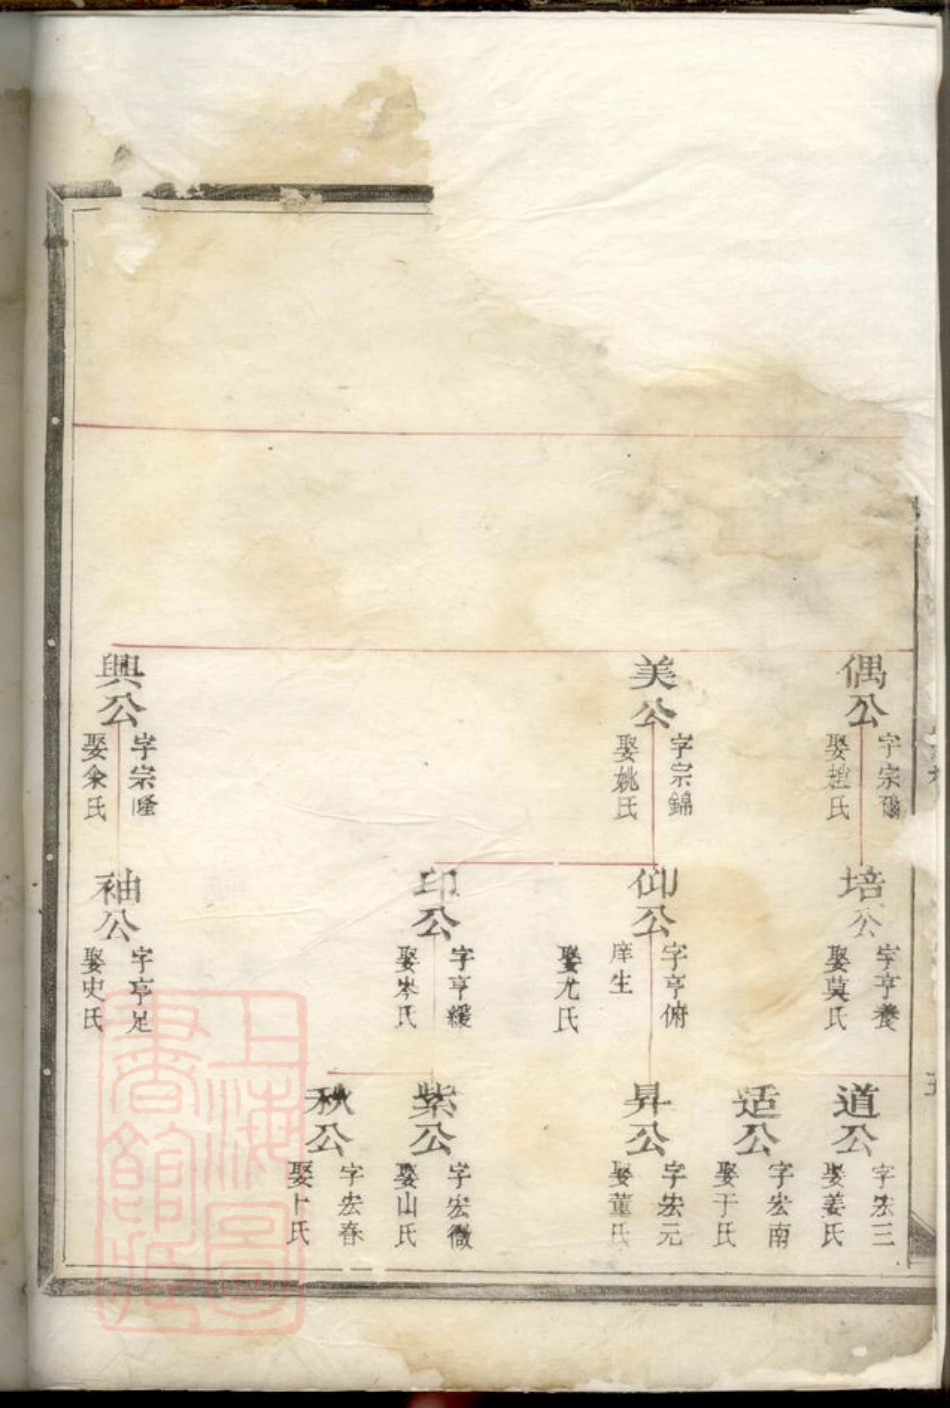 偶公
字宗爾
娶趙氏
美公
字宗錦
娶姚氏
興公
字宗隆
娶余氏
培公
字亨養
娶莫氏
仰公
字亨俯
庠生
娶尤氏
印公
字亨緩
娶岑氏
袖公
字亨足
娶史氏
道公
字宏三
娶姜氏
适公
字宏南
娶于氏
昇公
字宏元
娶董氏
紫公
字宏微
娶山氏
秋公
字宏春
娶卜氏
上海圖
書館藏